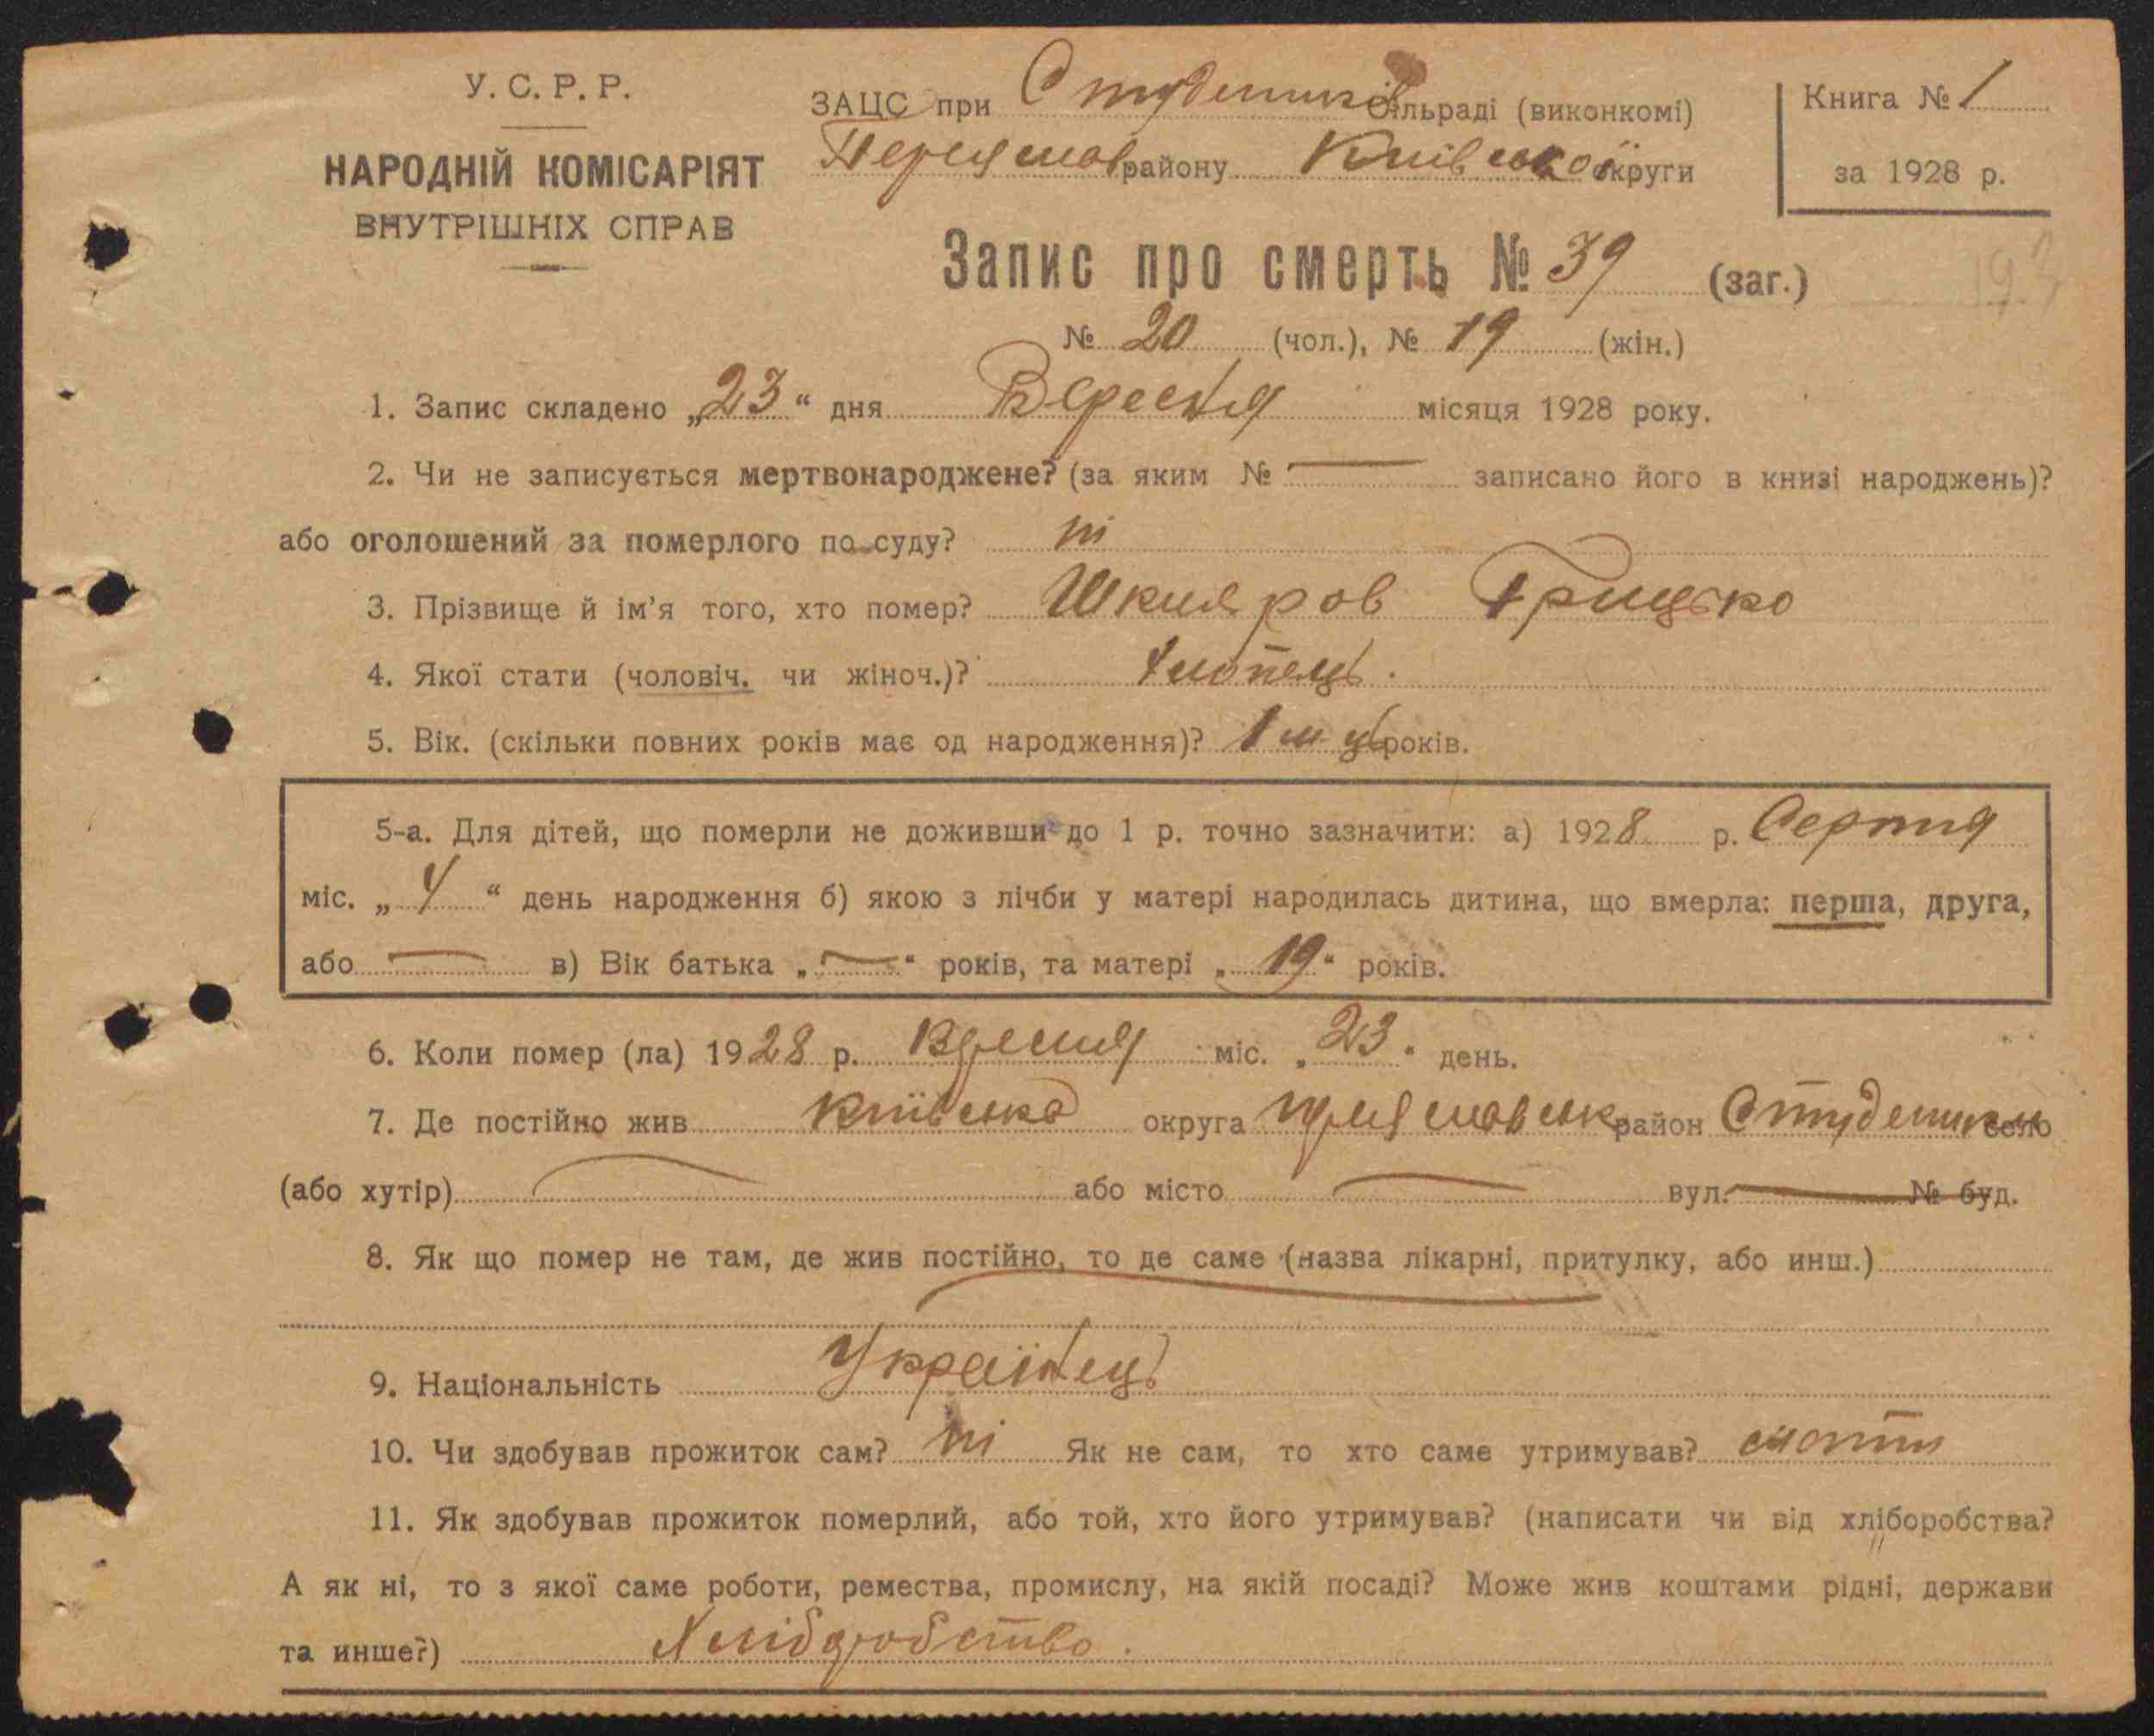 У. С. Р. Р.
НАРОДНІЙ КОМІСАРІЯТ
ВНУТРІШНІХ СПРАВ
ЗАЦС при Студеників сільраді (виконкомі)
Переяслав району Київської округи
Книга № 1
за 1928 р.
Запис про смерть № 39 (заг.)
№ 20 (чол.), № 19 (жін.)
1. Запис складено „23“ дня Вересня місяця 1928 року.
2. Чи не записується мертвонароджене? (за яким № — записано його в книзі народжень)?
або оголошений за померлого по суду? ні
3. Прізвище й ім’я того, хто помер? Шкляров Грицько
4. Якої стати (чоловіч. чи жіноч.)? хлопець.
5. Вік. (скільки повних років має од народження)? 1 м ць років.
5-а. Для дітей, що померли не доживши до 1 р. точно зазначити: а) 1928 р. Серпня
міс. „4“ день народження б) якою з лічби у матері народилась дитина, що вмерла: перша, друга,
або — в) Вік батька „—“ років, та матері „19“ років.
6. Коли помер (ла) 1928 р. Вересня міс. „23“ день.
7. Де постійно жив Київська округа Переяславськ район Студеники село
(або хутір) — або місто — вул. — № буд.
8. Як що помер не там, де жив постійно, то де саме (назва лікарні, притулку, або инш.)
9. Національність Українець
10. Чи здобував прожиток сам? ні Як не сам, то хто саме утримував? мати
11. Як здобував прожиток померлий, або той, хто його утримував? (написати чи від хліборобства?
А як ні, то з якої саме роботи, ремества, промислу, на якій посаді? Може жив коштами рідні, держави
та инше?) Хліборобство.